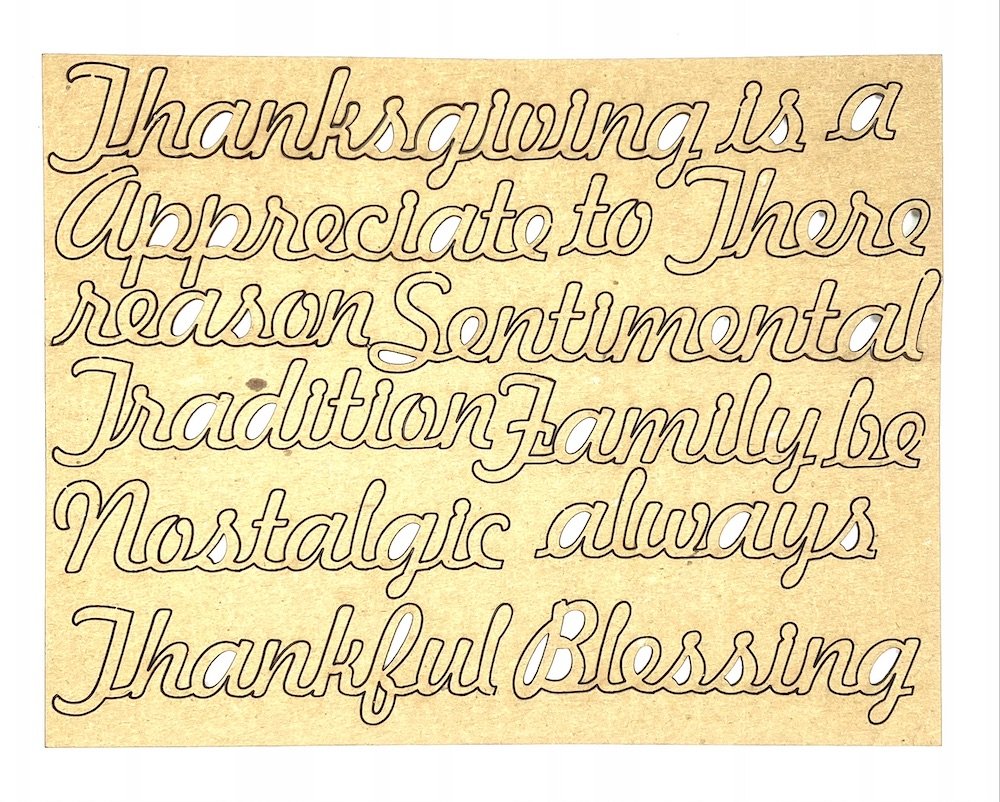 Thanksgiving is a
Appreciate to There
reason Sentimental
Tradition Family be
Nostalgic always
Thankful Blessing